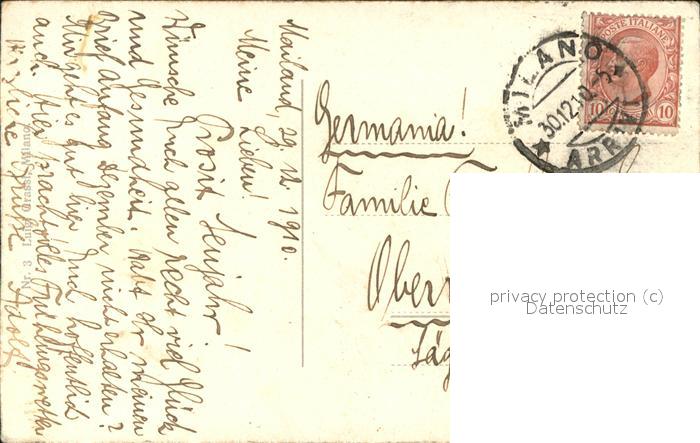 Mailand, 29. 12. 1910.
Meine Lieben!
Prosit Neujahr!
Wünsche Euch allen recht viel Glück
und Gesundheit. Habt Ihr meinen
Brief Anfang Dezember nicht erhalten?
Mir geht es gut hier und hoffentlich
auch Hier prachtvolles Frühlingswetter
Herzliche Grüße Adolf
Nr. 3 Luigi Grassi, Milano.
POSTE ITALIANE
10 10
MILANO
30.12.10
ARRIVI
Germania!
Familie
Ober
Jäg
privacy protection (c)
Datenschutz